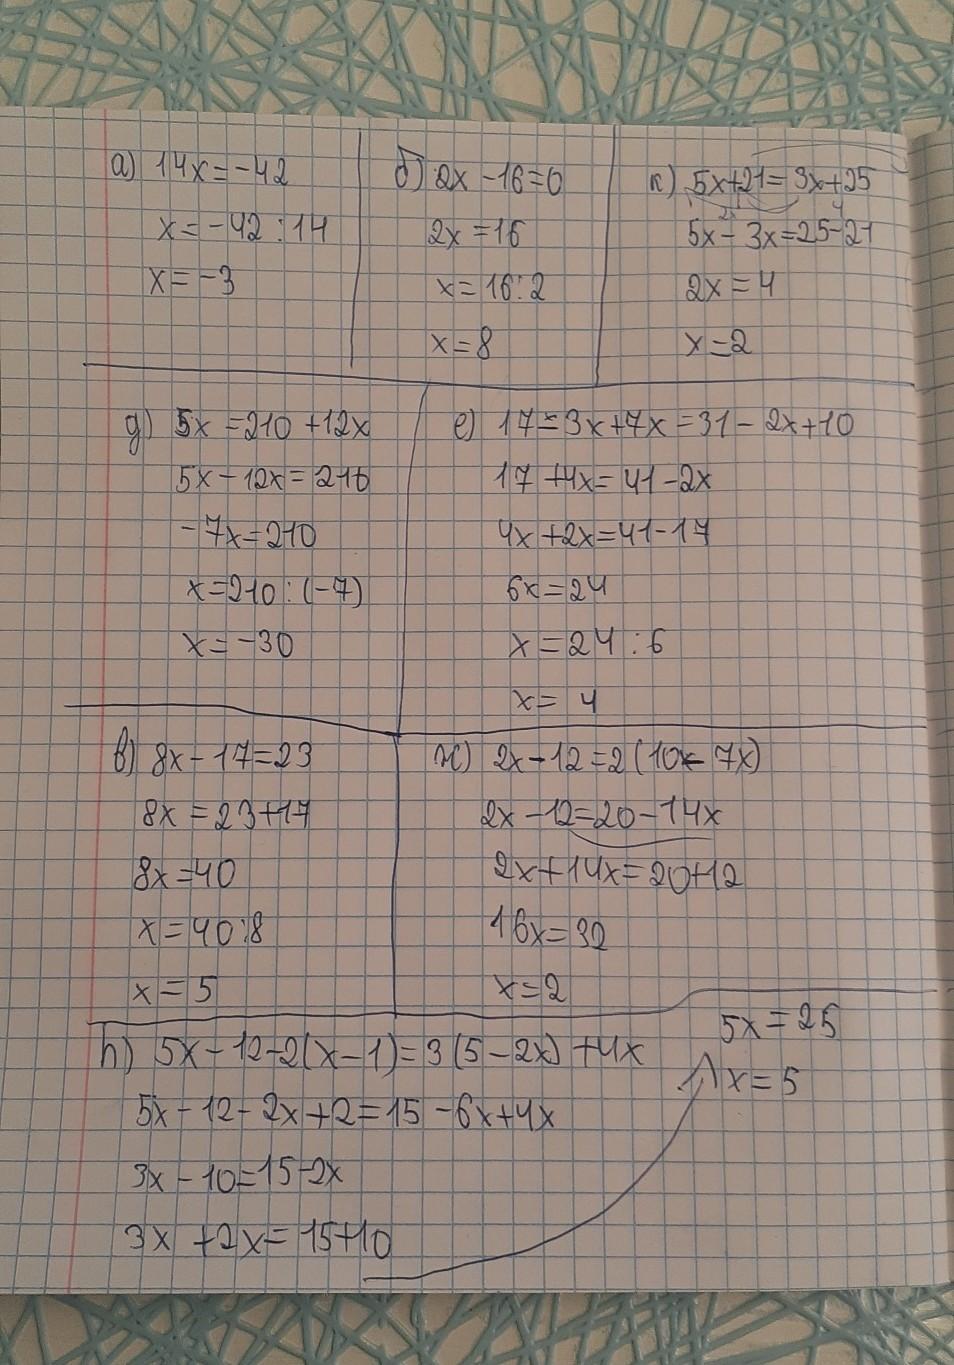 а) 14x=-42
x=-42:14
x=-3
б) 2x-16=0
2x=16
x=16:2
x=8
к) 5x+21=3x+25
5x-3x=25-21
2x=4
x=2
д) 5x=210+12x
5x-12x=210
-7x=210
x=210:(-7)
x=-30
е) 17-3x+7x=31-2x+10
17+4x=41-2x
4x+2x=41-17
6x=24
x=24:6
x=4
в) 8x-17=23
8x=23+17
8x=40
x=40:8
x=5
ж) 2x-12=2(10-7x)
2x-12=20-14x
2x+14x=20+12
16x=32
x=2
h) 5x-12-2(x-1)=3(5-2x)+4x
5x-12-2x+2=15-6x+4x
3x-10=15-2x
3x+2x=15+10
5x=25
x=5